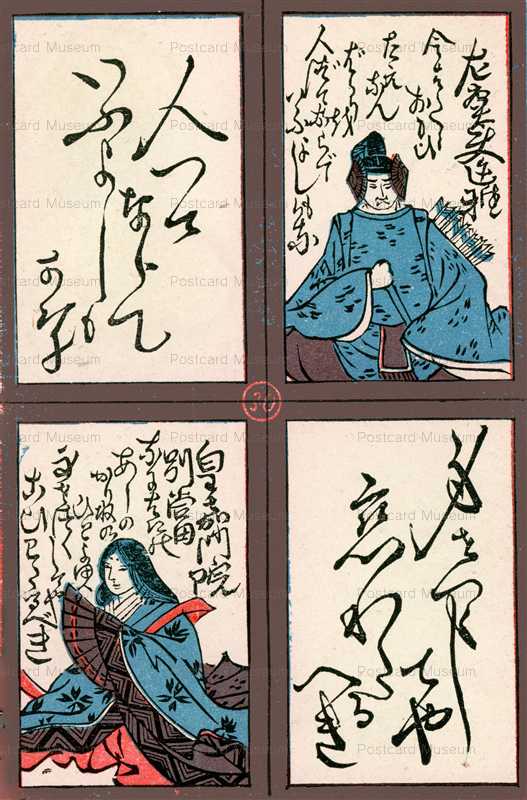 左京大夫道雅
今はたゝ
おもひ
たえなん
とばかりを
人づてならで
いふよしもがな
人つて
ならて
いふよしも
かな
皇嘉門院
別当
なにはえの
あしの
かりねの
ひとよゆゑ
身をつくしてや
こひわたるべき
身をつくしてや
恋わたる
べき
Postcard Museum